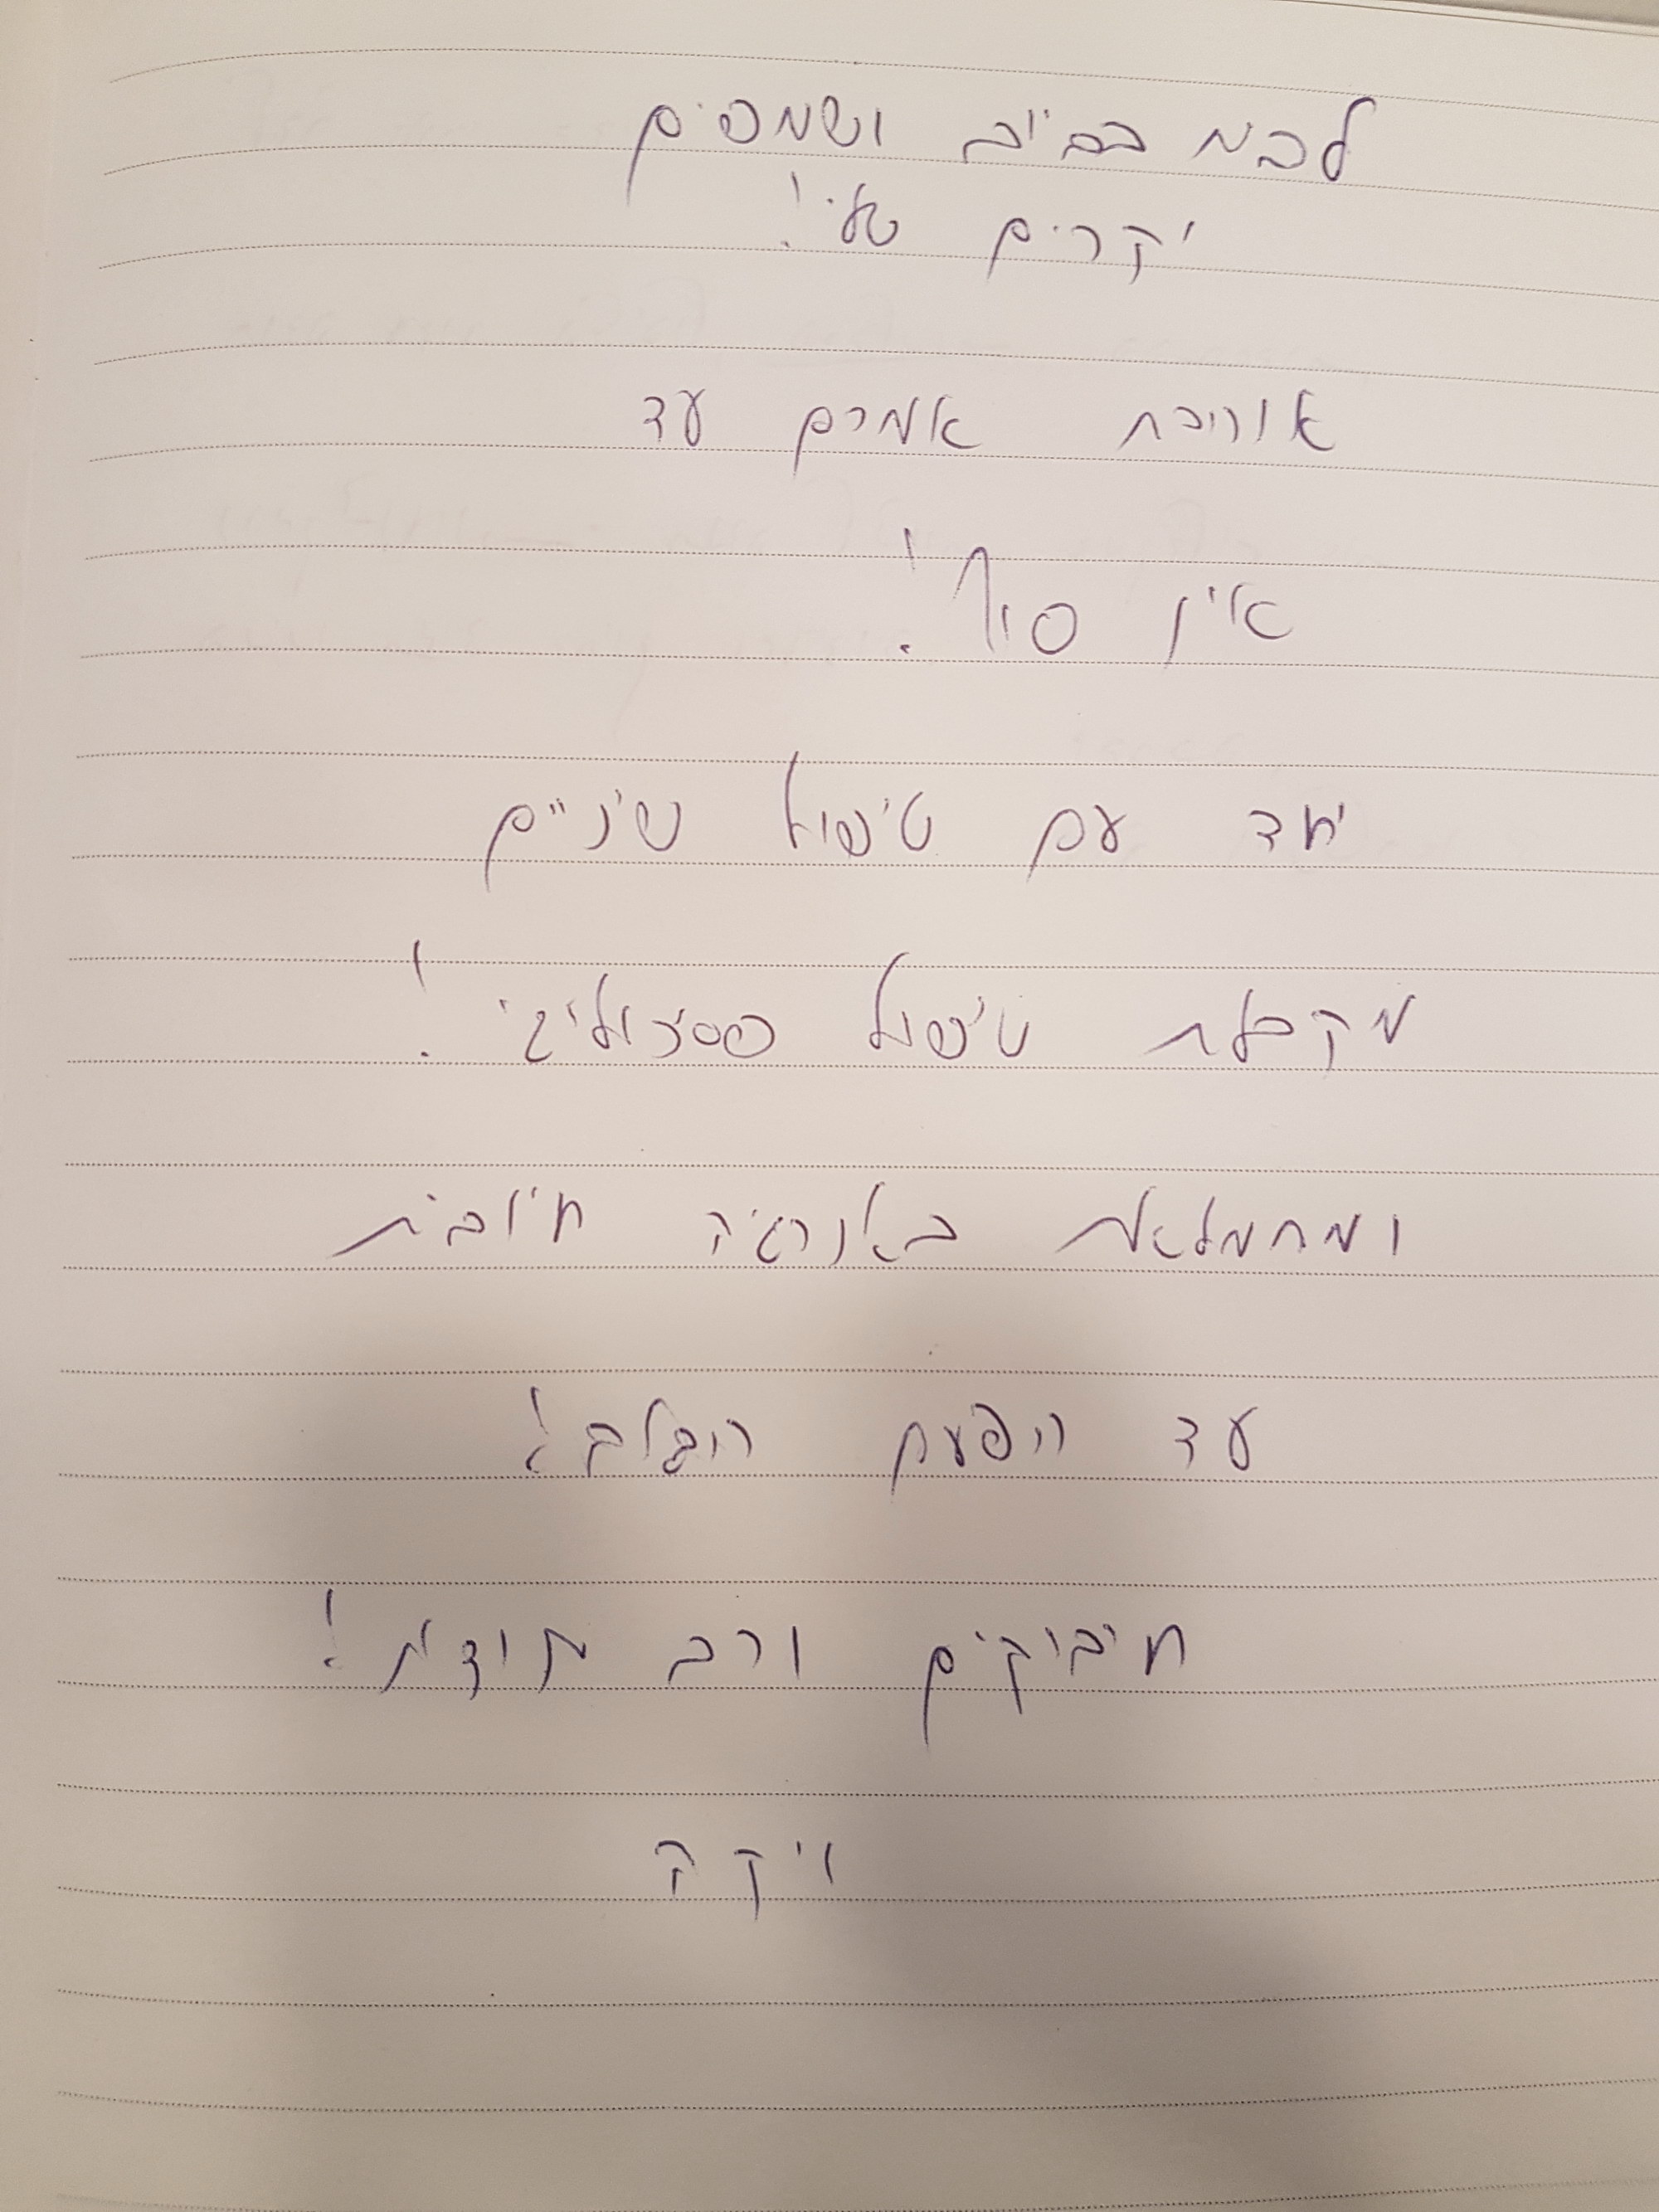 יקרים שלי!
אוהבת אתכם עד
אין סוף!
יחד עם טיפול שיניים
מקבלת טיפול פסיכולוגי!
ומתמלאת באנרגיה חיובית
עד הפעם הבאה!
חיבוקים ורב תודות!
ויקה